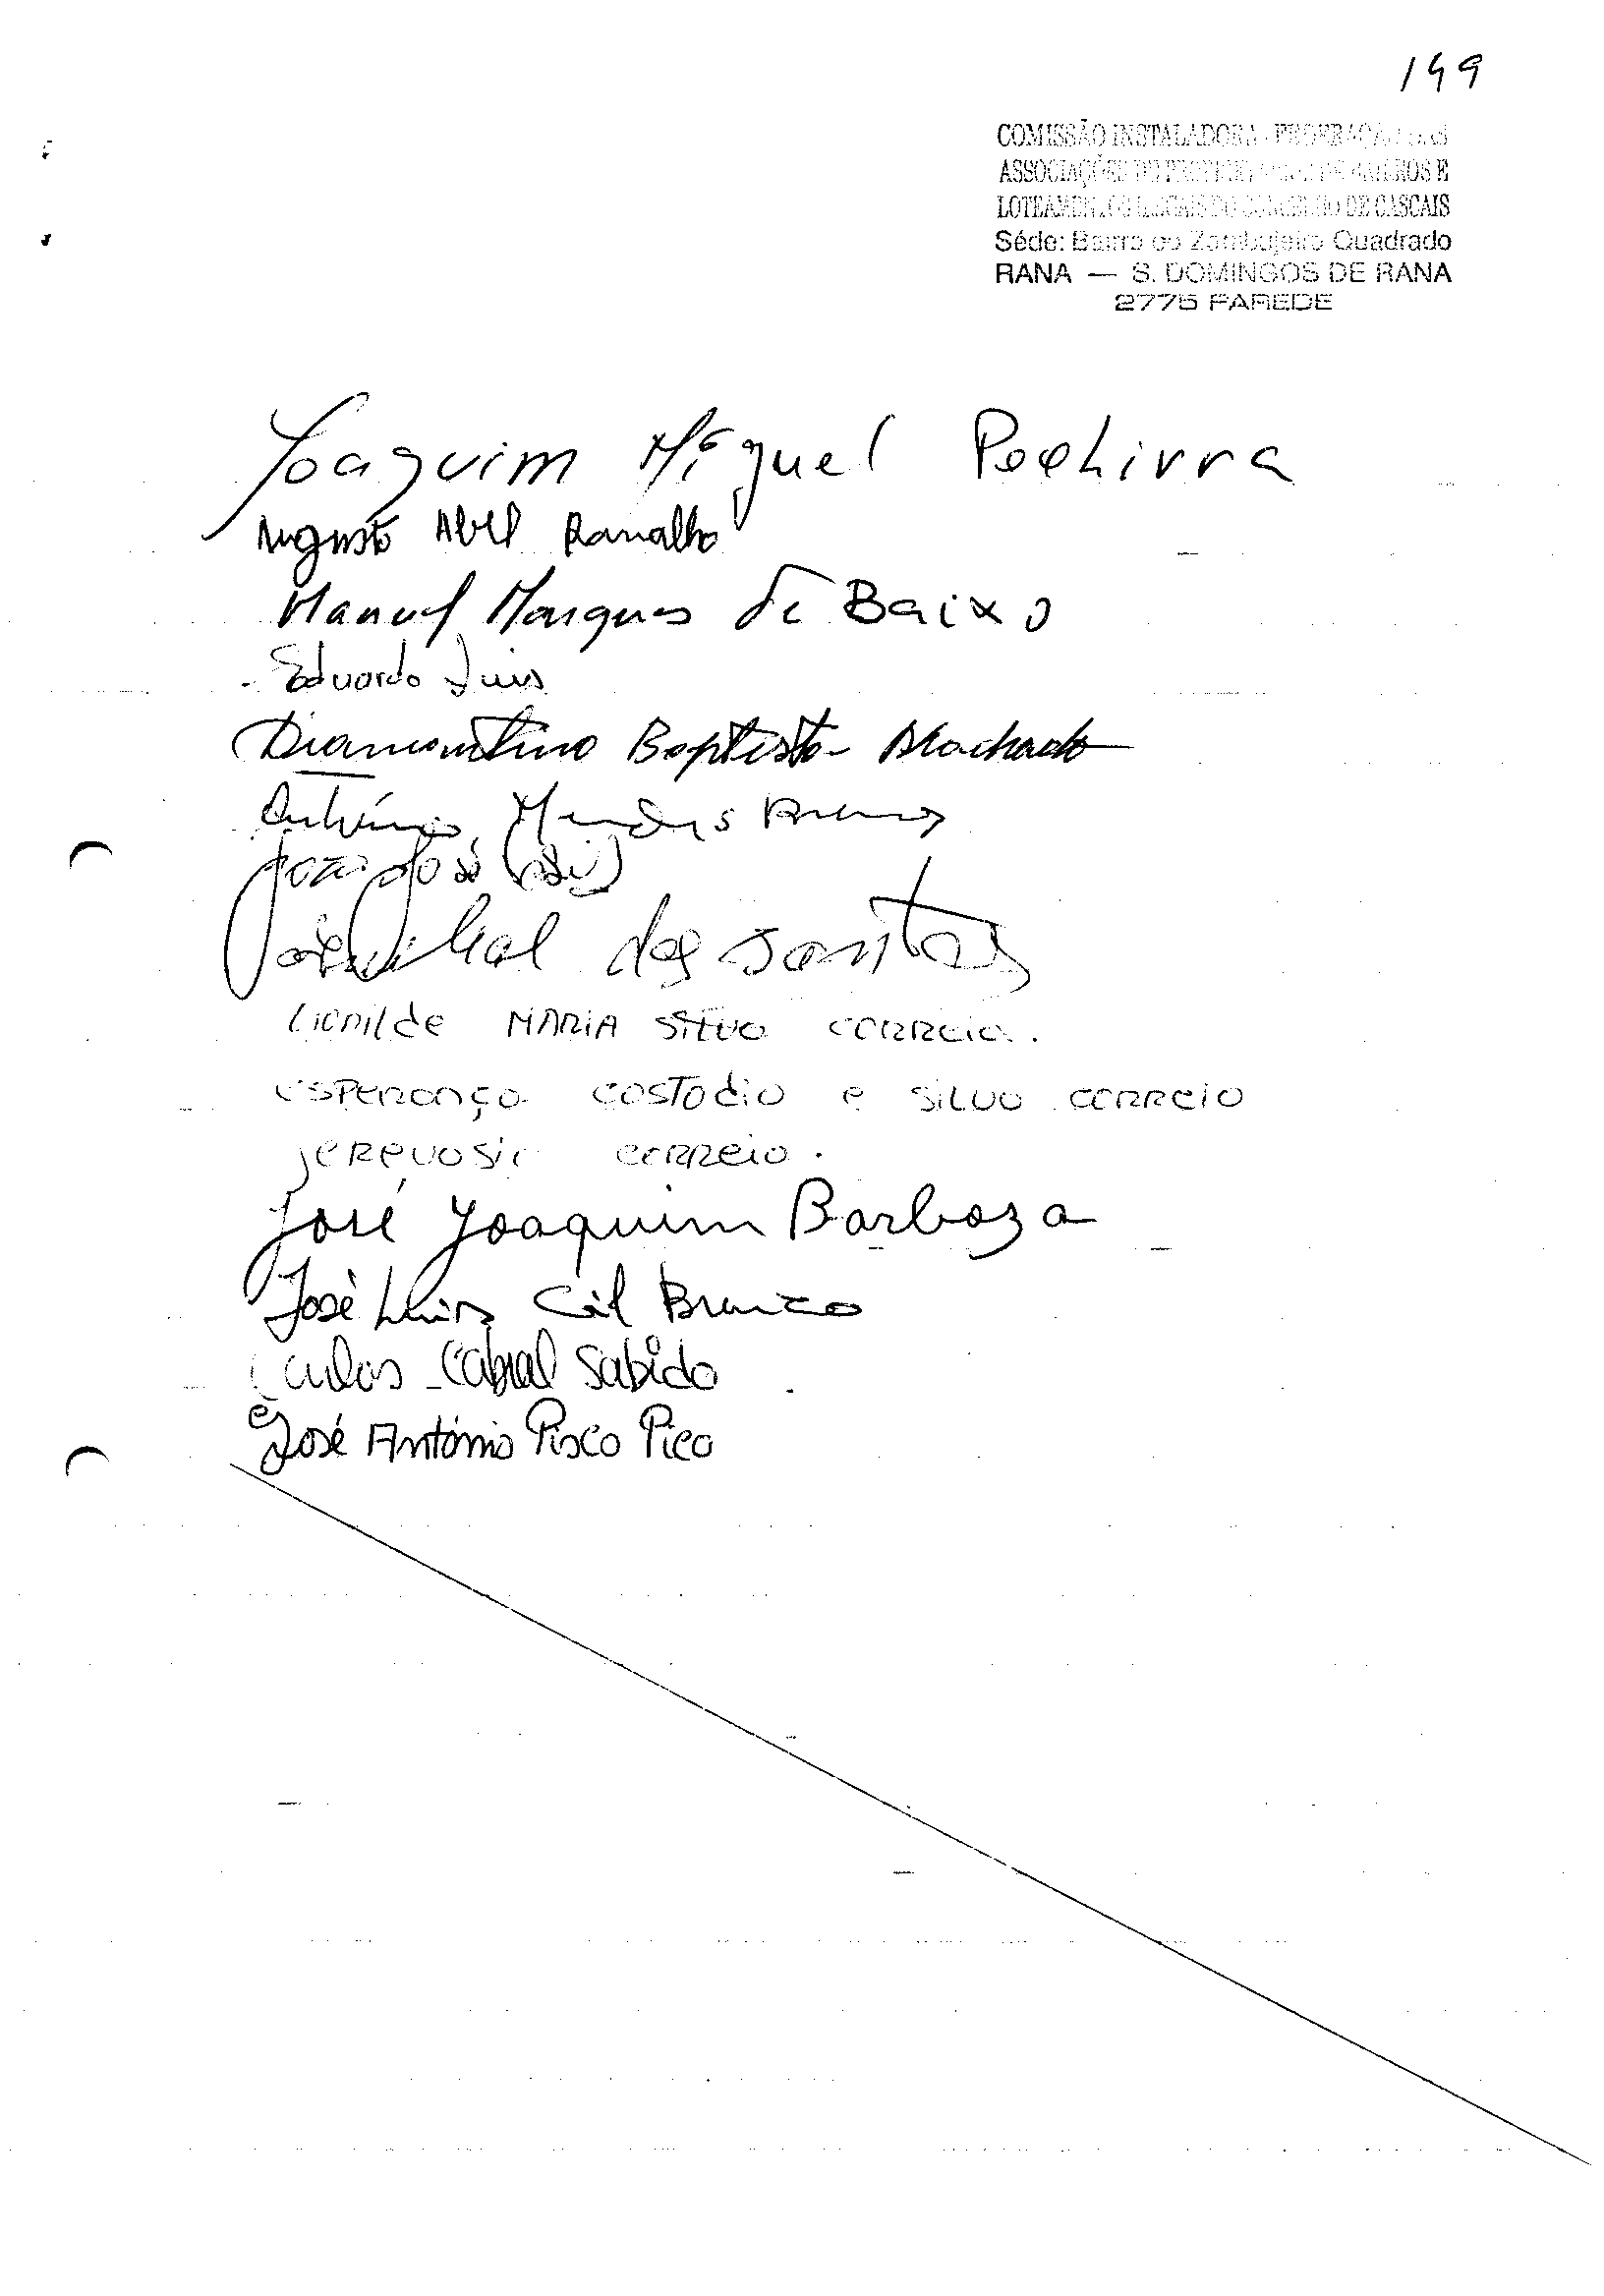 149
COMISSÃO INSTALADORA - FEDERAÇÃO DAS
ASSOCIAÇÕES DE PROPRIETÁRIOS DE BAIRROS E
LOTEAMENTOS ILEGAIS DO CONCELHO DE CASCAIS
Séde: Bairro do Zambujeiro Quadrado
RANA — S. DOMINGOS DE RANA
2775 PAREDE
Joaquim Miguel Pechirra
Augusto Abel Ramalho
Manuel Marques de Baixo
Eduardo Luis
Diamantino Baptista Machado
António Mendes
João José
José dos Santos
Lionilde MARIA Silva Correia.
esperança custodio e silva correia
correia.
José Joaquim Barboza
José Luis Gil Branco
Carlos Cabral Sabido
José António Pisco Pico